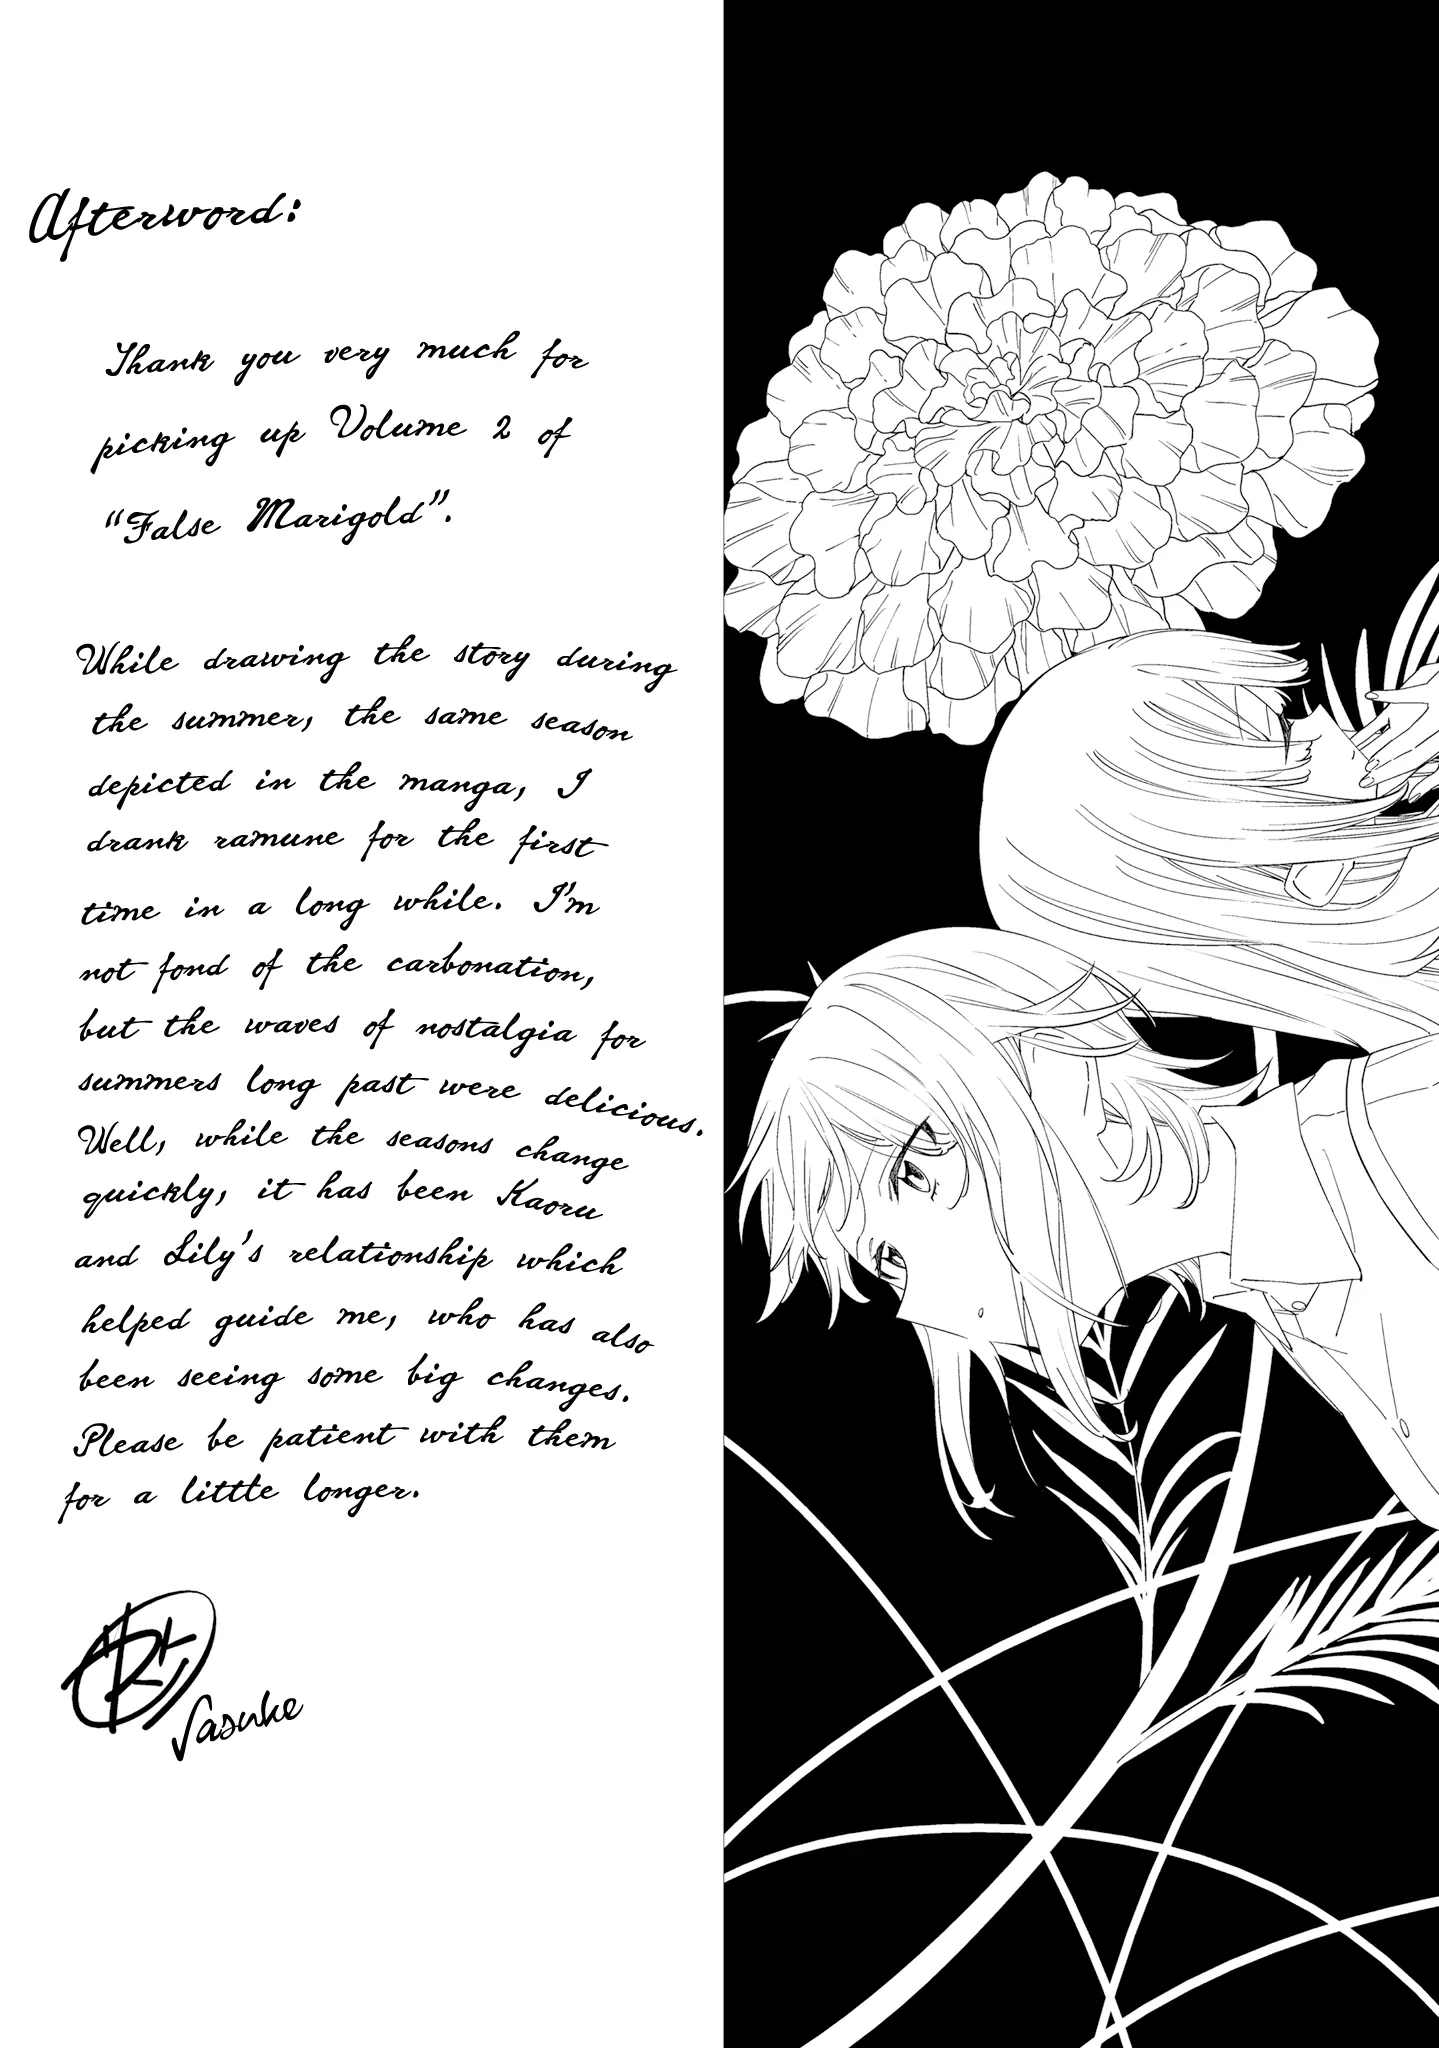 Afterword:
Thank you very much for
picking up Volume 2 of
“False Marigold”.
While drawing the story during
the summer, the same season
depicted in the manga, I
drank ramune for the first
time in a long while. I'm
not fond of the carbonation,
but the waves of nostalgia for
summers long past were delicious.
Well, while the seasons change
quickly, it has been Kaoru
and Lily's relationship which
helped guide me, who has also
been seeing some big changes.
Please be patient with them
for a little longer.
Sasuke